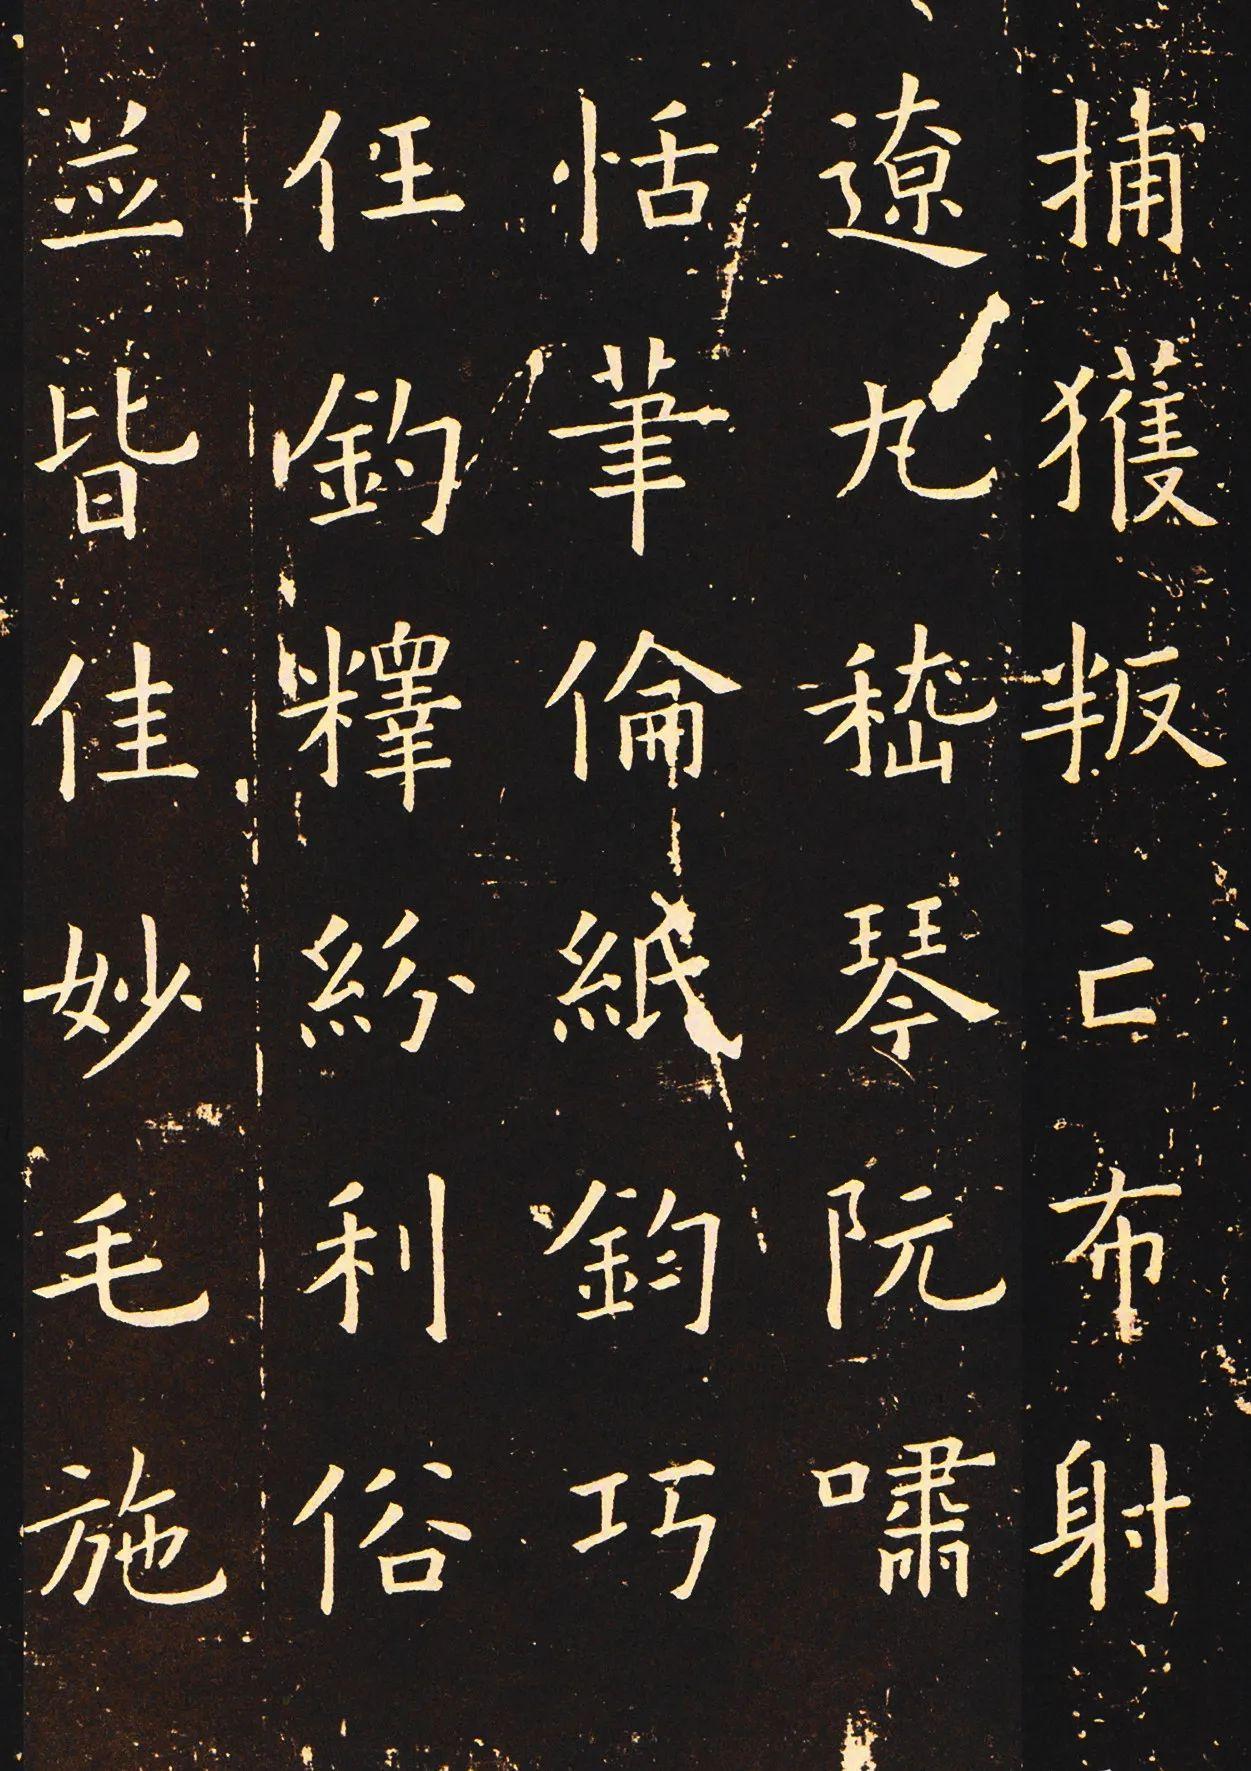 捕獲叛亡布射
遼丸嵇琴阮嘯
恬筆倫紙鈞巧
任釣釋紛利俗
並皆佳妙毛施